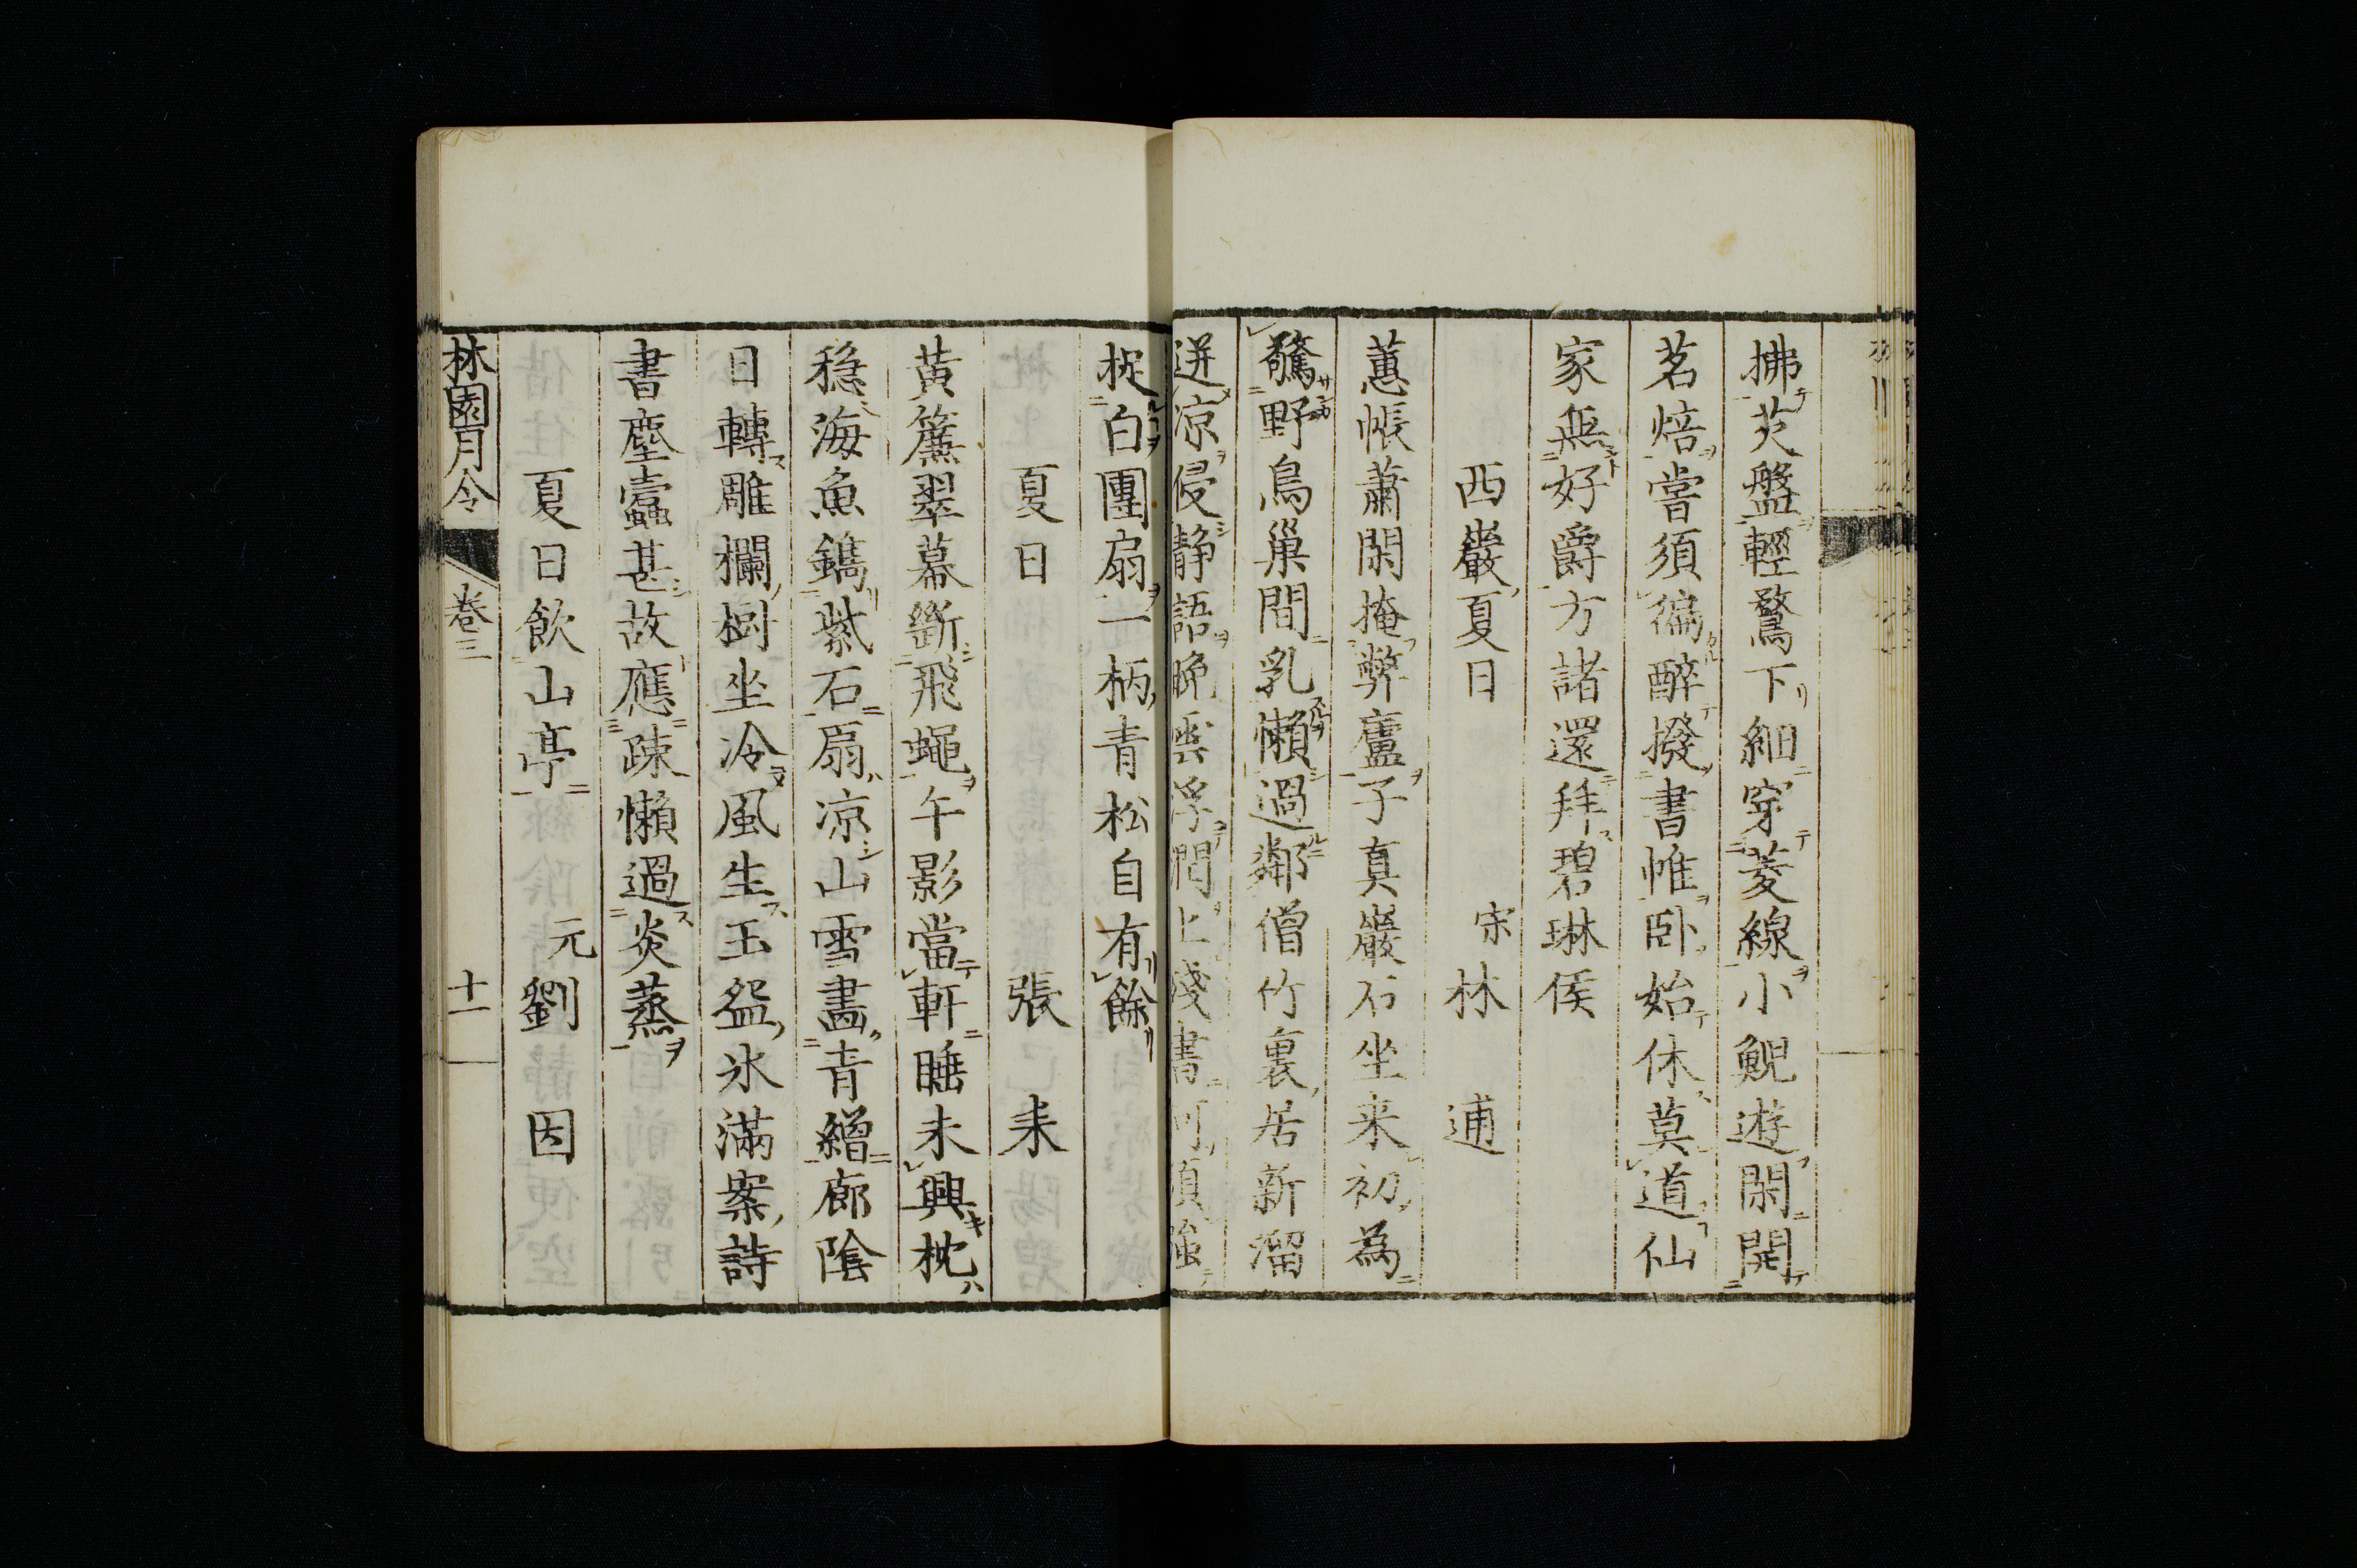 拂芡盤輕鶩下細穿菱線小鯢遊閑開
茗焙嘗須徧醉撥書帷卧始休莫道仙
家無好爵方諸還拜碧琳侯
西巖夏日　宋林逋
蕙帳蕭閑掩弊廬子真巖石坐来初為
驚野鳥巢間乳懶過鄰僧竹裏居新溜
迸凉侵静語晚雲浮潤上殘書何須強
捉白團扇一柄青松自有餘
夏日　張耒
黄簾翠幕斷飛蠅午影當軒睡未興枕
穏海魚鐫紫石扇凉山雪畫青繒廊陰
日轉雕欄樹坐冷風生玉盌氷滿案詩
書塵蠧甚故應疎懶過炎蒸
夏日飲山亭　元劉因
林園月令　卷三　十一